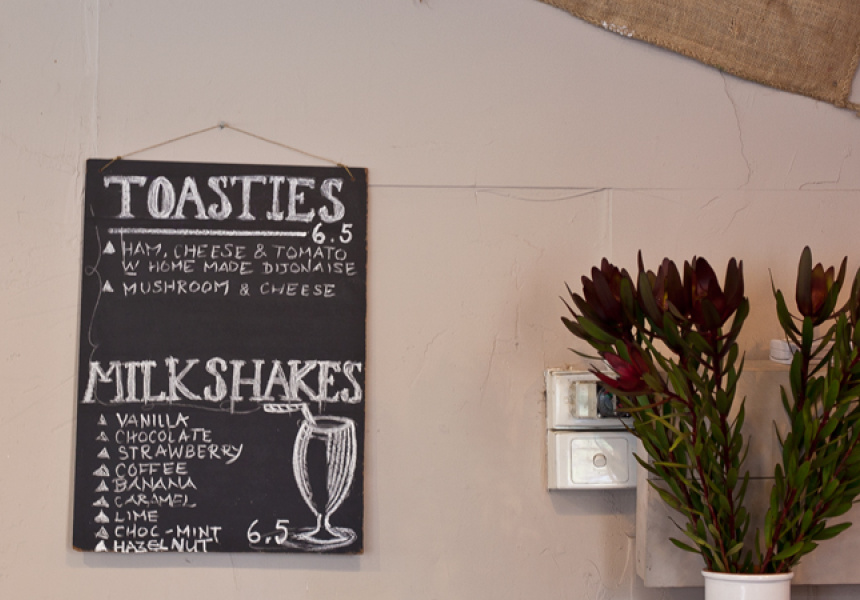 TOASTIES
6.5
HAM, CHEESE & TOMATO
W HOME MADE DIJONAISE
MUSHROOM & CHEESE
MILKSHAKES
VANILLA
CHOCOLATE
STRAWBERRY
COFFEE
BANANA
CARAMEL
LIME
CHOC-MINT 6.5
HAZELNUT